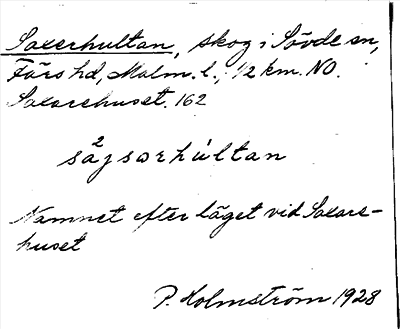 Saxerhultan, skog i Sövde sn,
Färs hd, Malm. l., 1/2 km. NO.
Saxarehuset. 162
Namnet efter läget vid Saxare-
huset
P. Holmström 1928